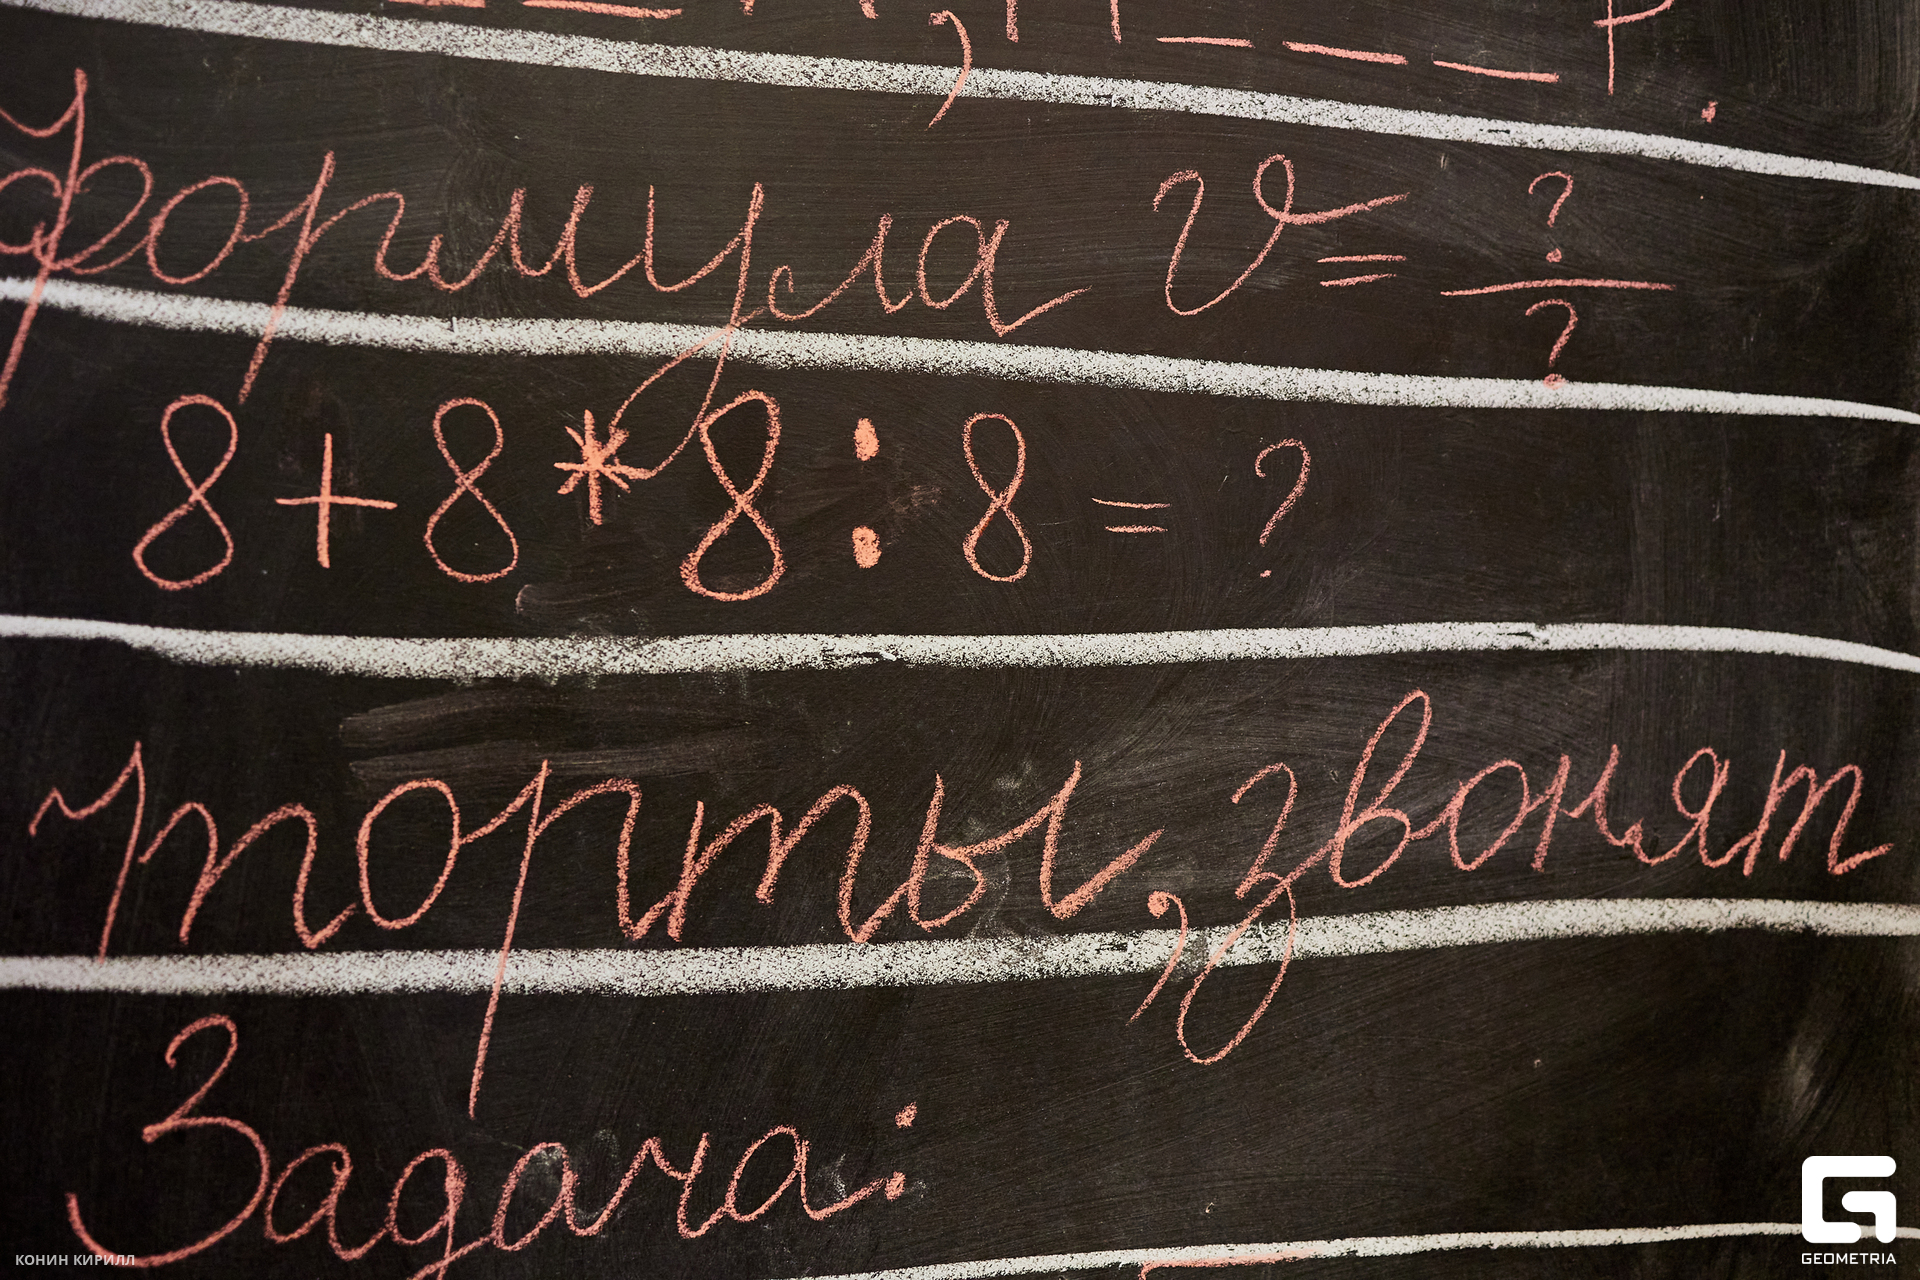 формула v = ?/?
8 + 8 * 8 : 8 = ?
торты, звонят
Задача:
КОНИН КИРИЛЛ
GEOMETRIA